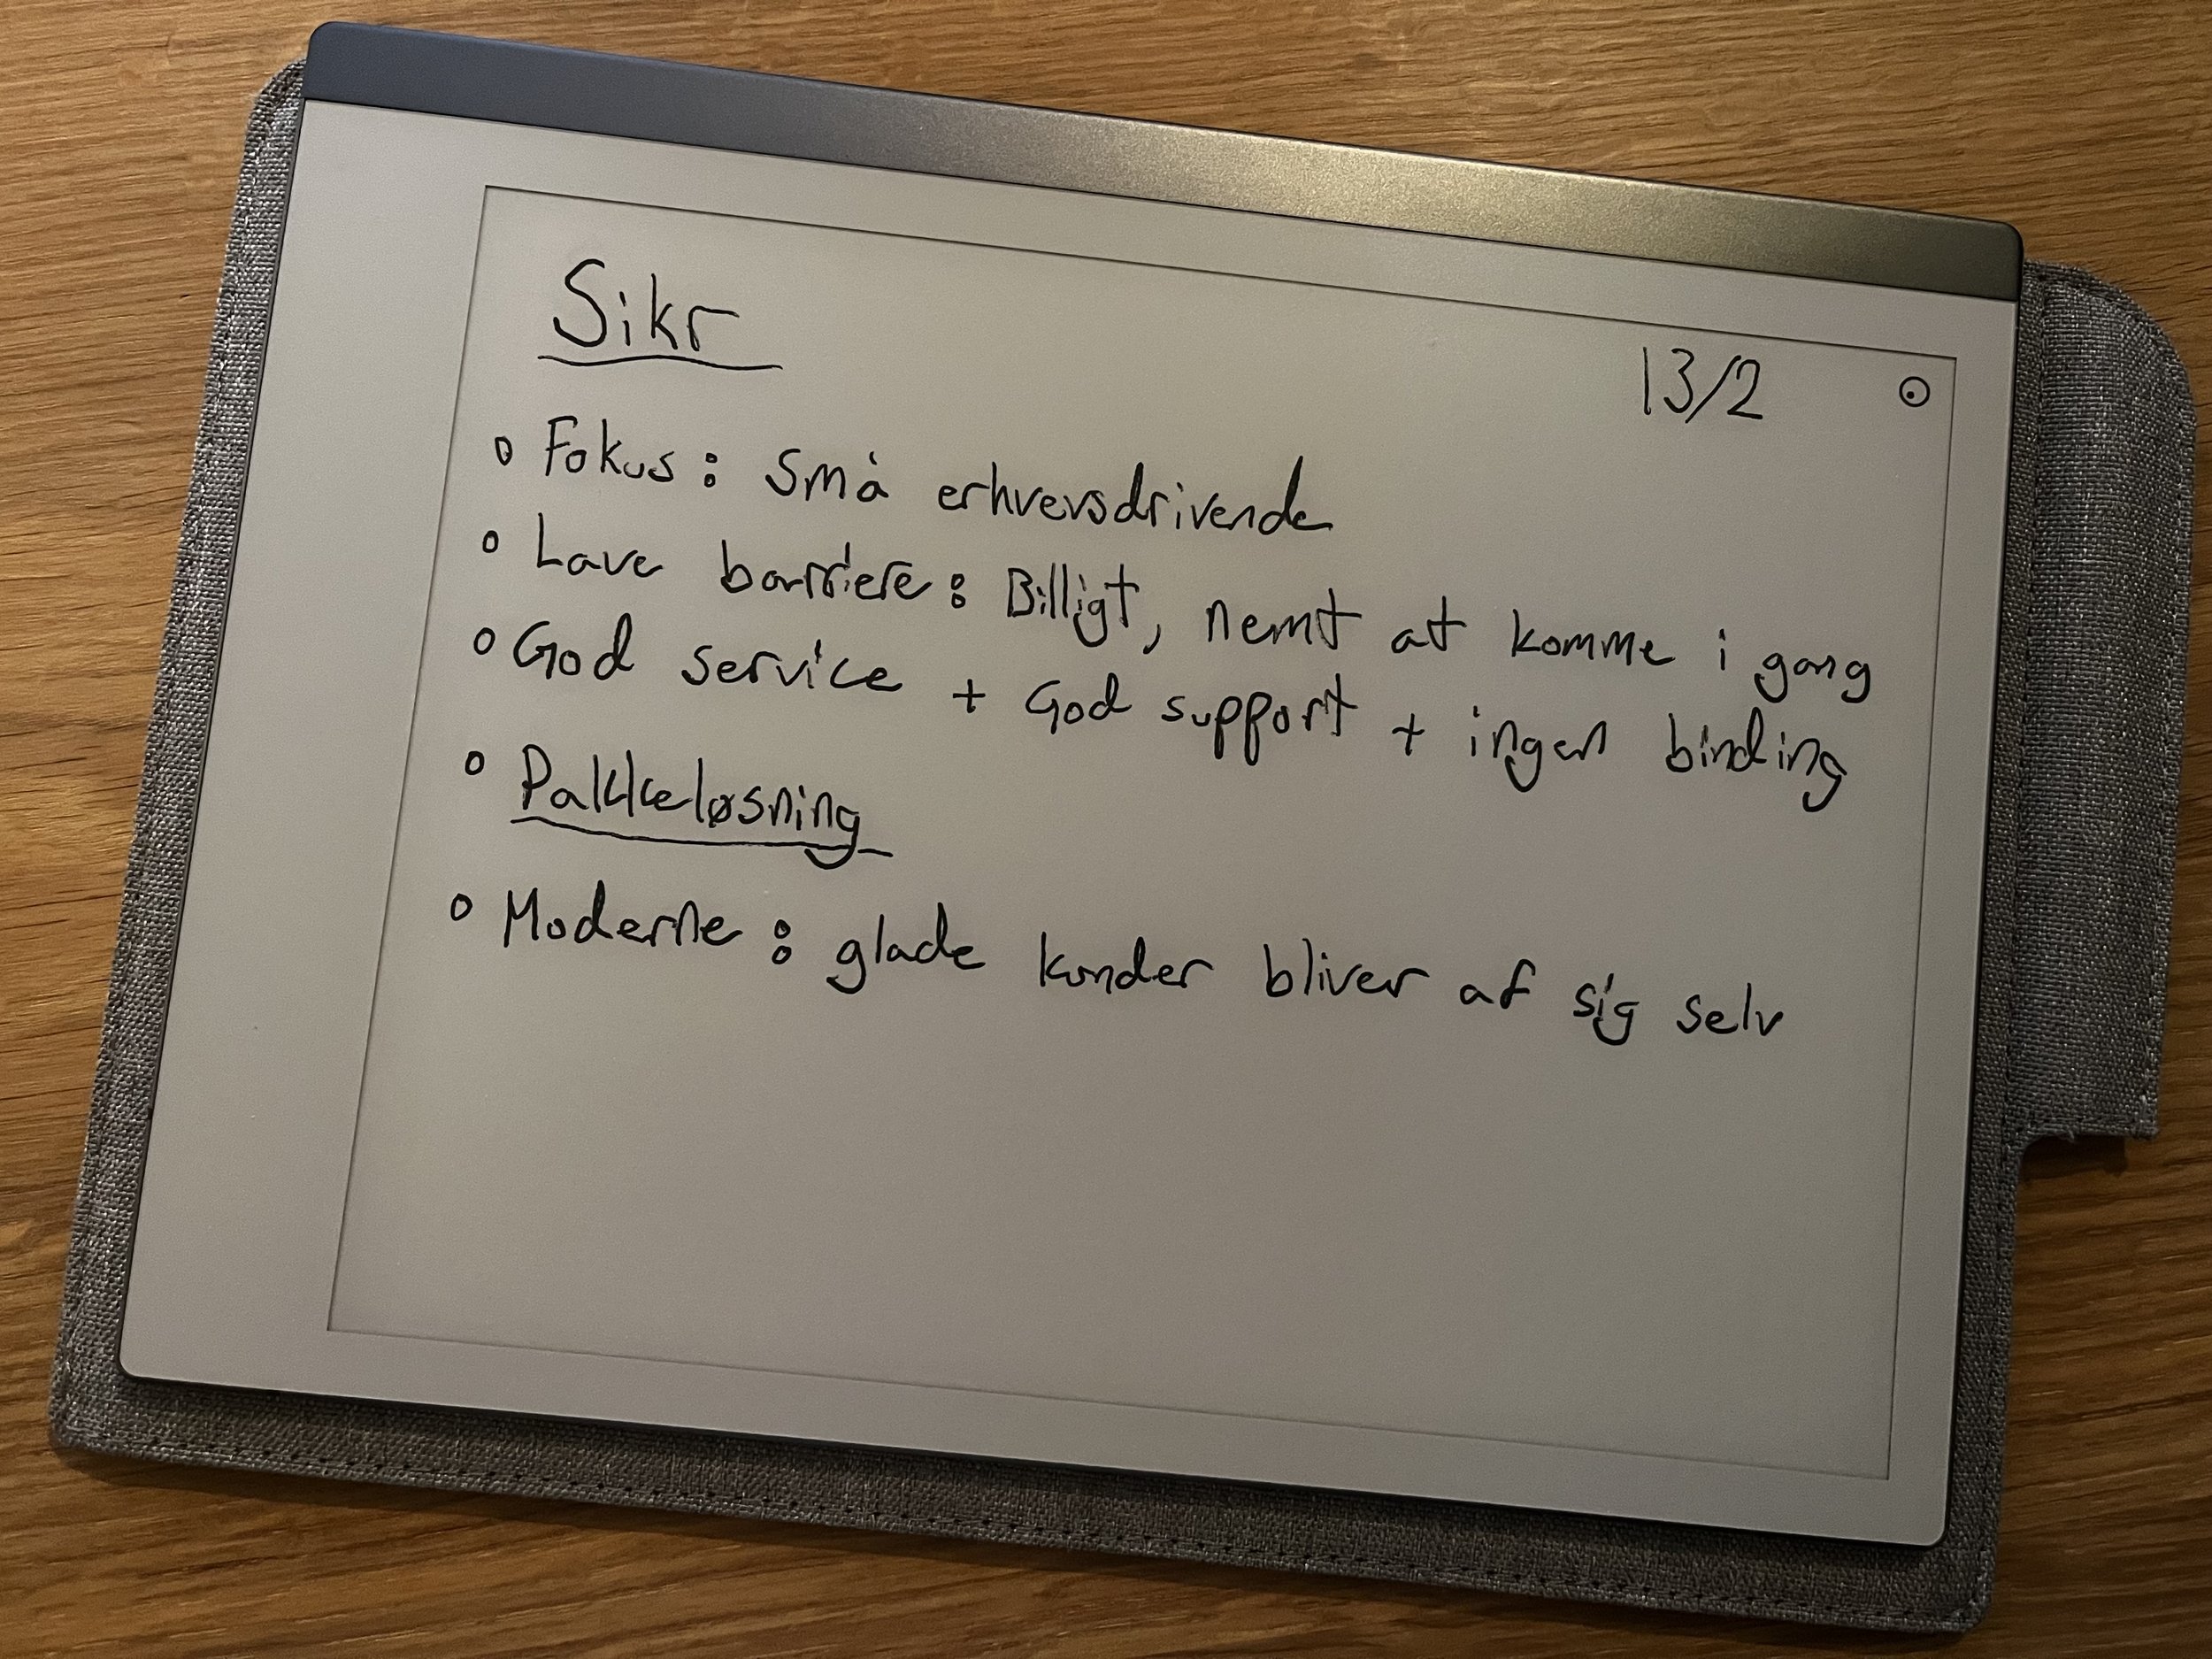 Sikr
13/2
o Fokus: Små erhvervsdrivende
o Lave barriere: Billigt, nemt at komme i gang
o God service + God support + ingen binding
o Pakkeløsning
o Moderne: glade kunder bliver af sig selv